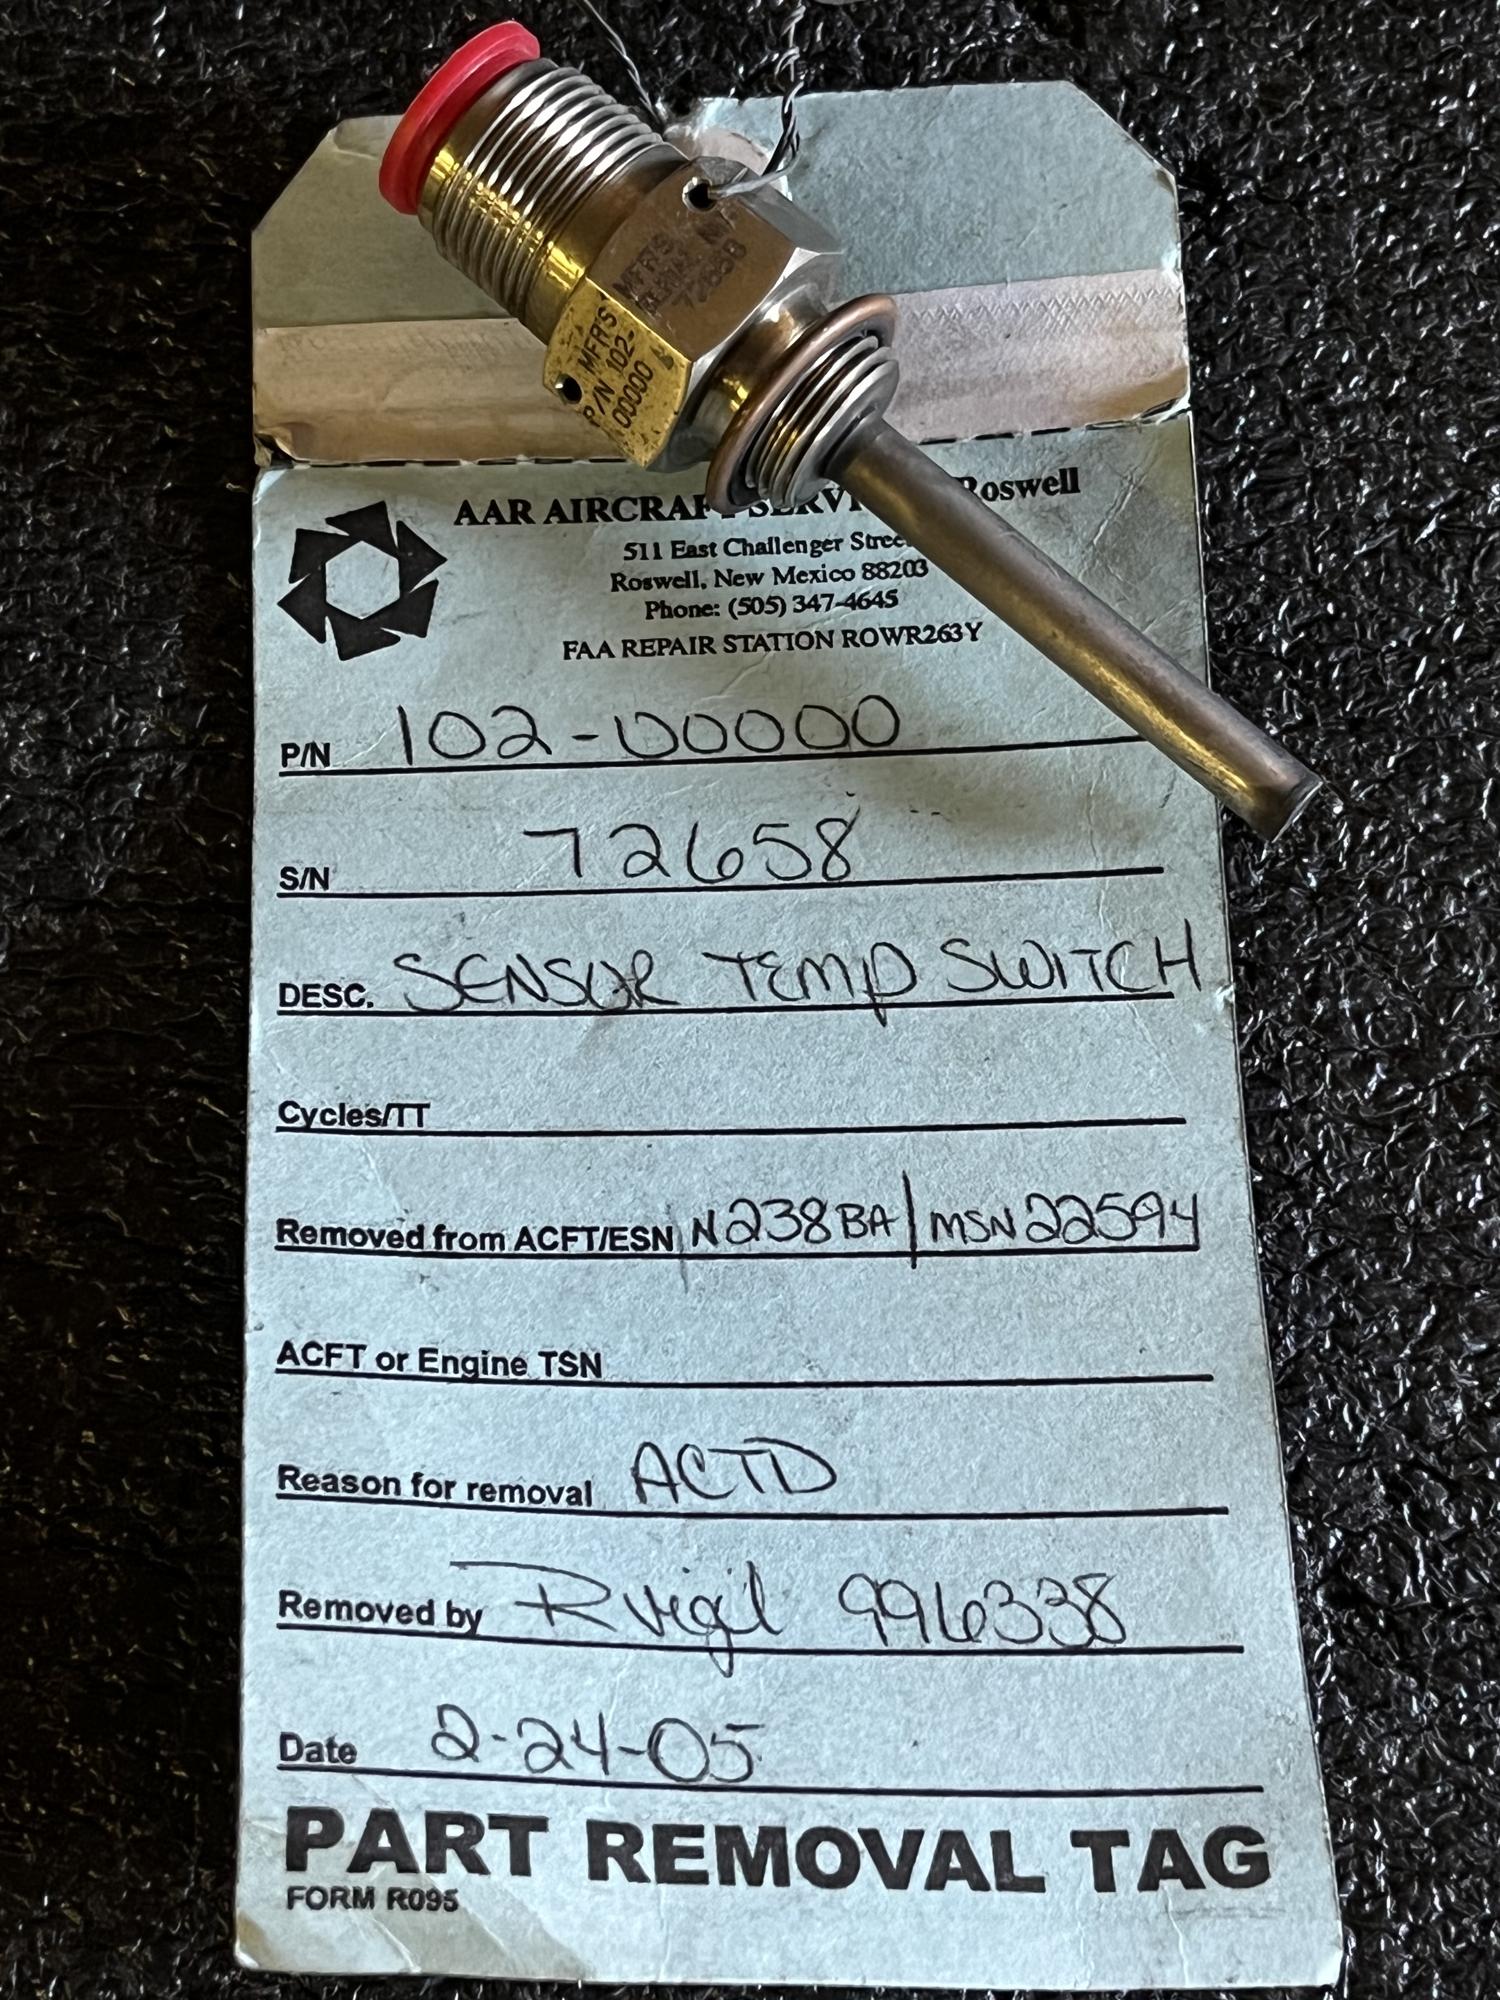 MFR'S
P/N 102-
00000
MFR'S
SERIAL NO
72658
AAR AIRCRAFT SERVI Roswell
511 East Challenger Stree
Roswell, New Mexico 88203
Phone: (505) 347-4645
FAA REPAIR STATION ROWR263Y
P/N 102-00000
S/N 72658
DESC. SENSOR TEMP SWITCH
Cycles/TT
Removed from ACFT/ESN N238BA/MSN22594
ACFT or Engine TSN
Reason for removal ACTD
Removed by Rvigil 996338
Date 2-24-05
PART REMOVAL TAG
FORM R095